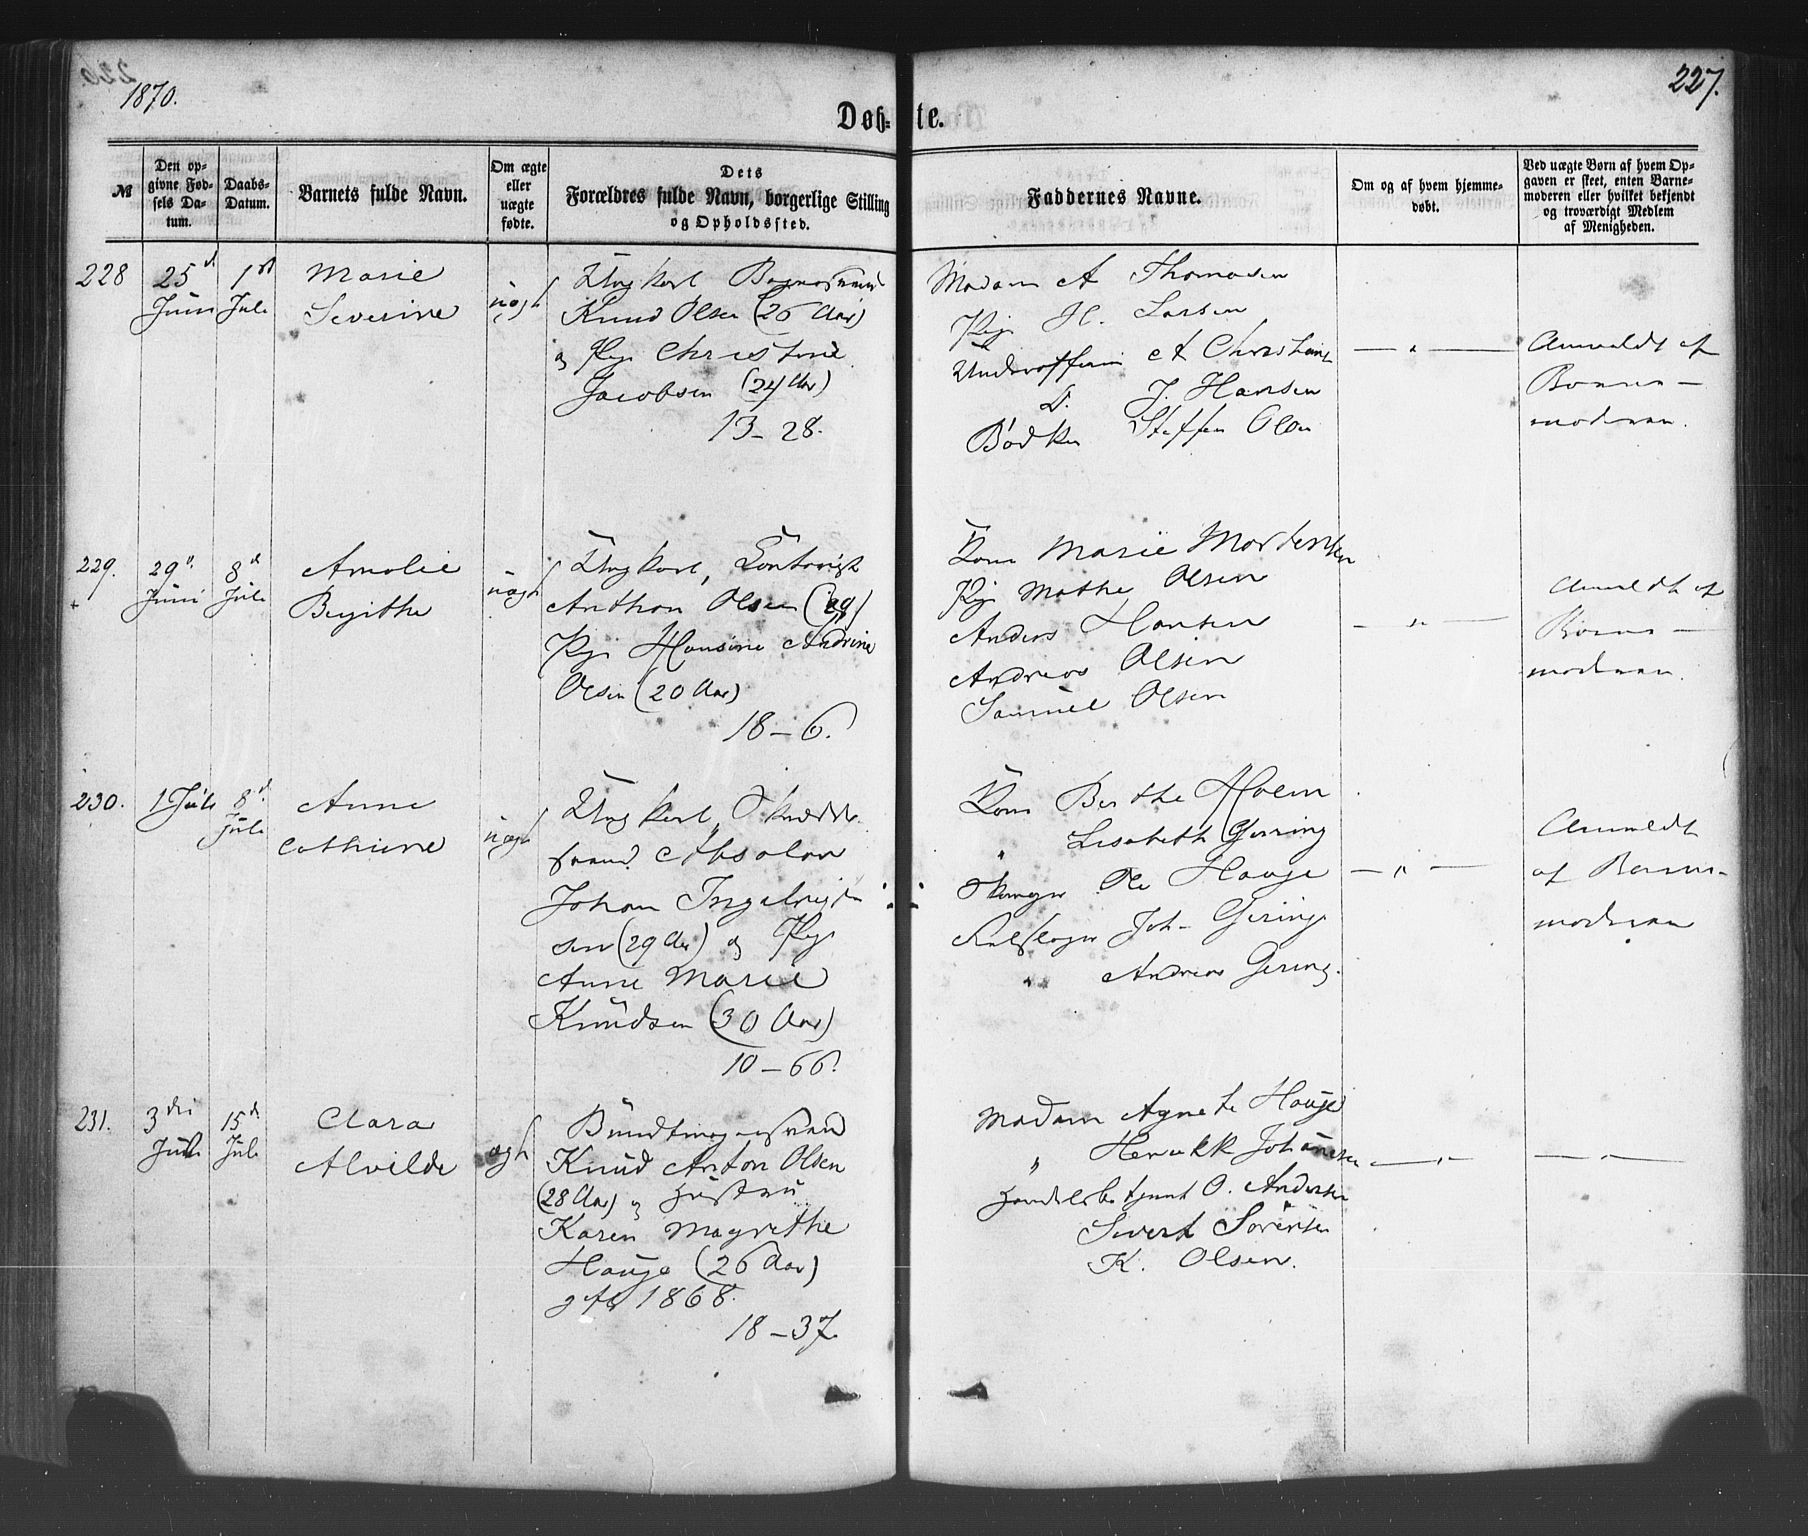 1870.
227.
Døb-te.
№
Den opgivne Fødsels Datum.
Daabs-Datum.
Barnets fulde Navn.
Om ægte eller uægte fødte.
Dets Forældres fulde Navn, borgerlige Stilling og Opholdssted.
Faddernes Navne.
Om og af hvem hjemmedøbt.
Ved uægte Børn af hvem Opgaven er skeet, enten Barnemoderen eller hvilket bekjendt og troværdigt Medlem af Menigheden.
228
25 Juni
1 Juli
Marie
Severine
uægt
Ungkarl
Knud Olsen (26 Aar)
og Pige Christine
Jacobsen (24 Aar)
13-28.
Madam A Thomasen
Pige H. Larsen
Underofficier A Christians
D. J. Hansen
Bødker Steffen Olsen
Anmeldt af
Barne-
moderen.
229.
29 Juni
8 Juli
Amalie
Birgithe
uægt
Ungkarl,
Anthon Olsen (29)
Pige Hansine Andrine
Olsen (20 Aar)
18-6.
Kone Marie Mortensen
Pige Mathe Olsen
Anders Hansen
Andreas Olsen
Samuel Olsen
Anmeldt af
Barne-
moderen.
230.
1 Juli
8 Juli
Anne
Cathrine
uægt
Ungkarl,
svend Absalon
Johan Ingebrigt
sen (29 Aar) og Pige
Anne Marie
Knudsen (30 Aar)
10-66.
Kone Berthe Holm
" Lisabeth Giering
Ole Hauge
Joh. Giering
" Andreas Giering.
Anmeldt
af Barne-
moderen
231.
3die Juli
15de Juli
Clara
Alvilde
ægt
Bundtmagersvend
Knud Anton Olsen
(28 Aar) og Hustru
Karen Magrethe
Hauge (26 Aar)
gift 1868.
18-37.
Madam Agnete Hauge
" Henrikke Johannesen
Handelsbetjent O. Andersen
Sivert Sørensen
K. Olsen.